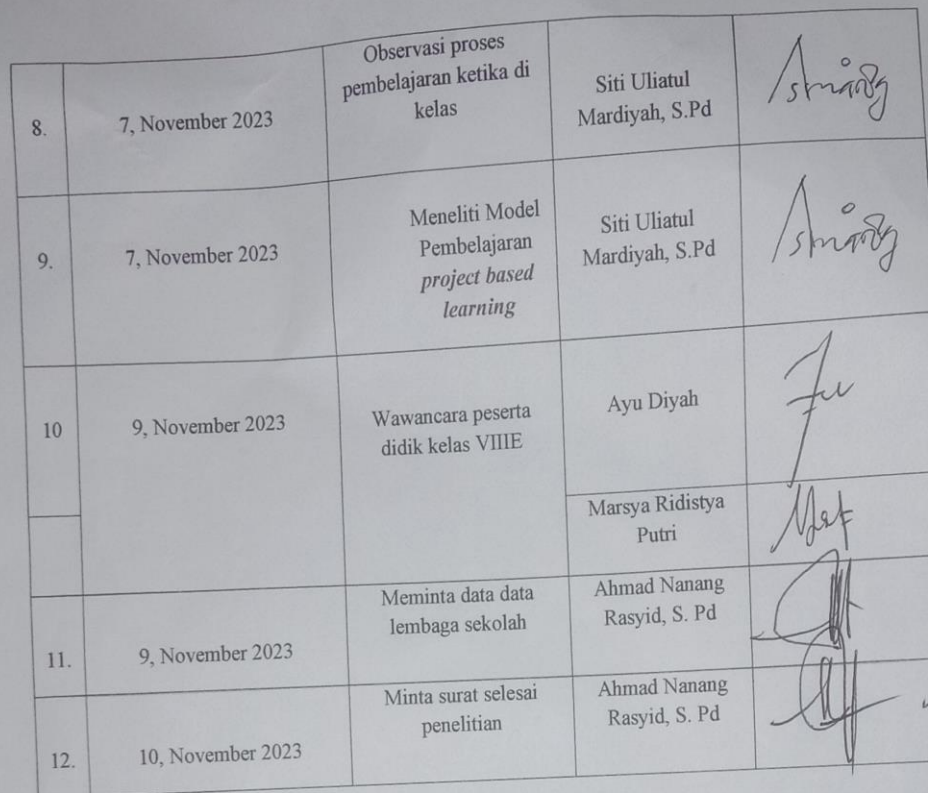 8.
7, November 2023
Observasi proses
pembelajaran ketika di
kelas
Siti Uliatul
Mardiyah, S.Pd
9.
7, November 2023
Meneliti Model
Pembelajaran
project based
learning
Siti Uliatul
Mardiyah, S.Pd
10
9, November 2023
Wawancara peserta
didik kelas VIIIE
Ayu Diyah
Marsya Ridistya
Putri
11.
9, November 2023
Meminta data data
lembaga sekolah
Ahmad Nanang
Rasyid, S. Pd
12.
10, November 2023
Minta surat selesai
penelitian
Ahmad Nanang
Rasyid, S. Pd